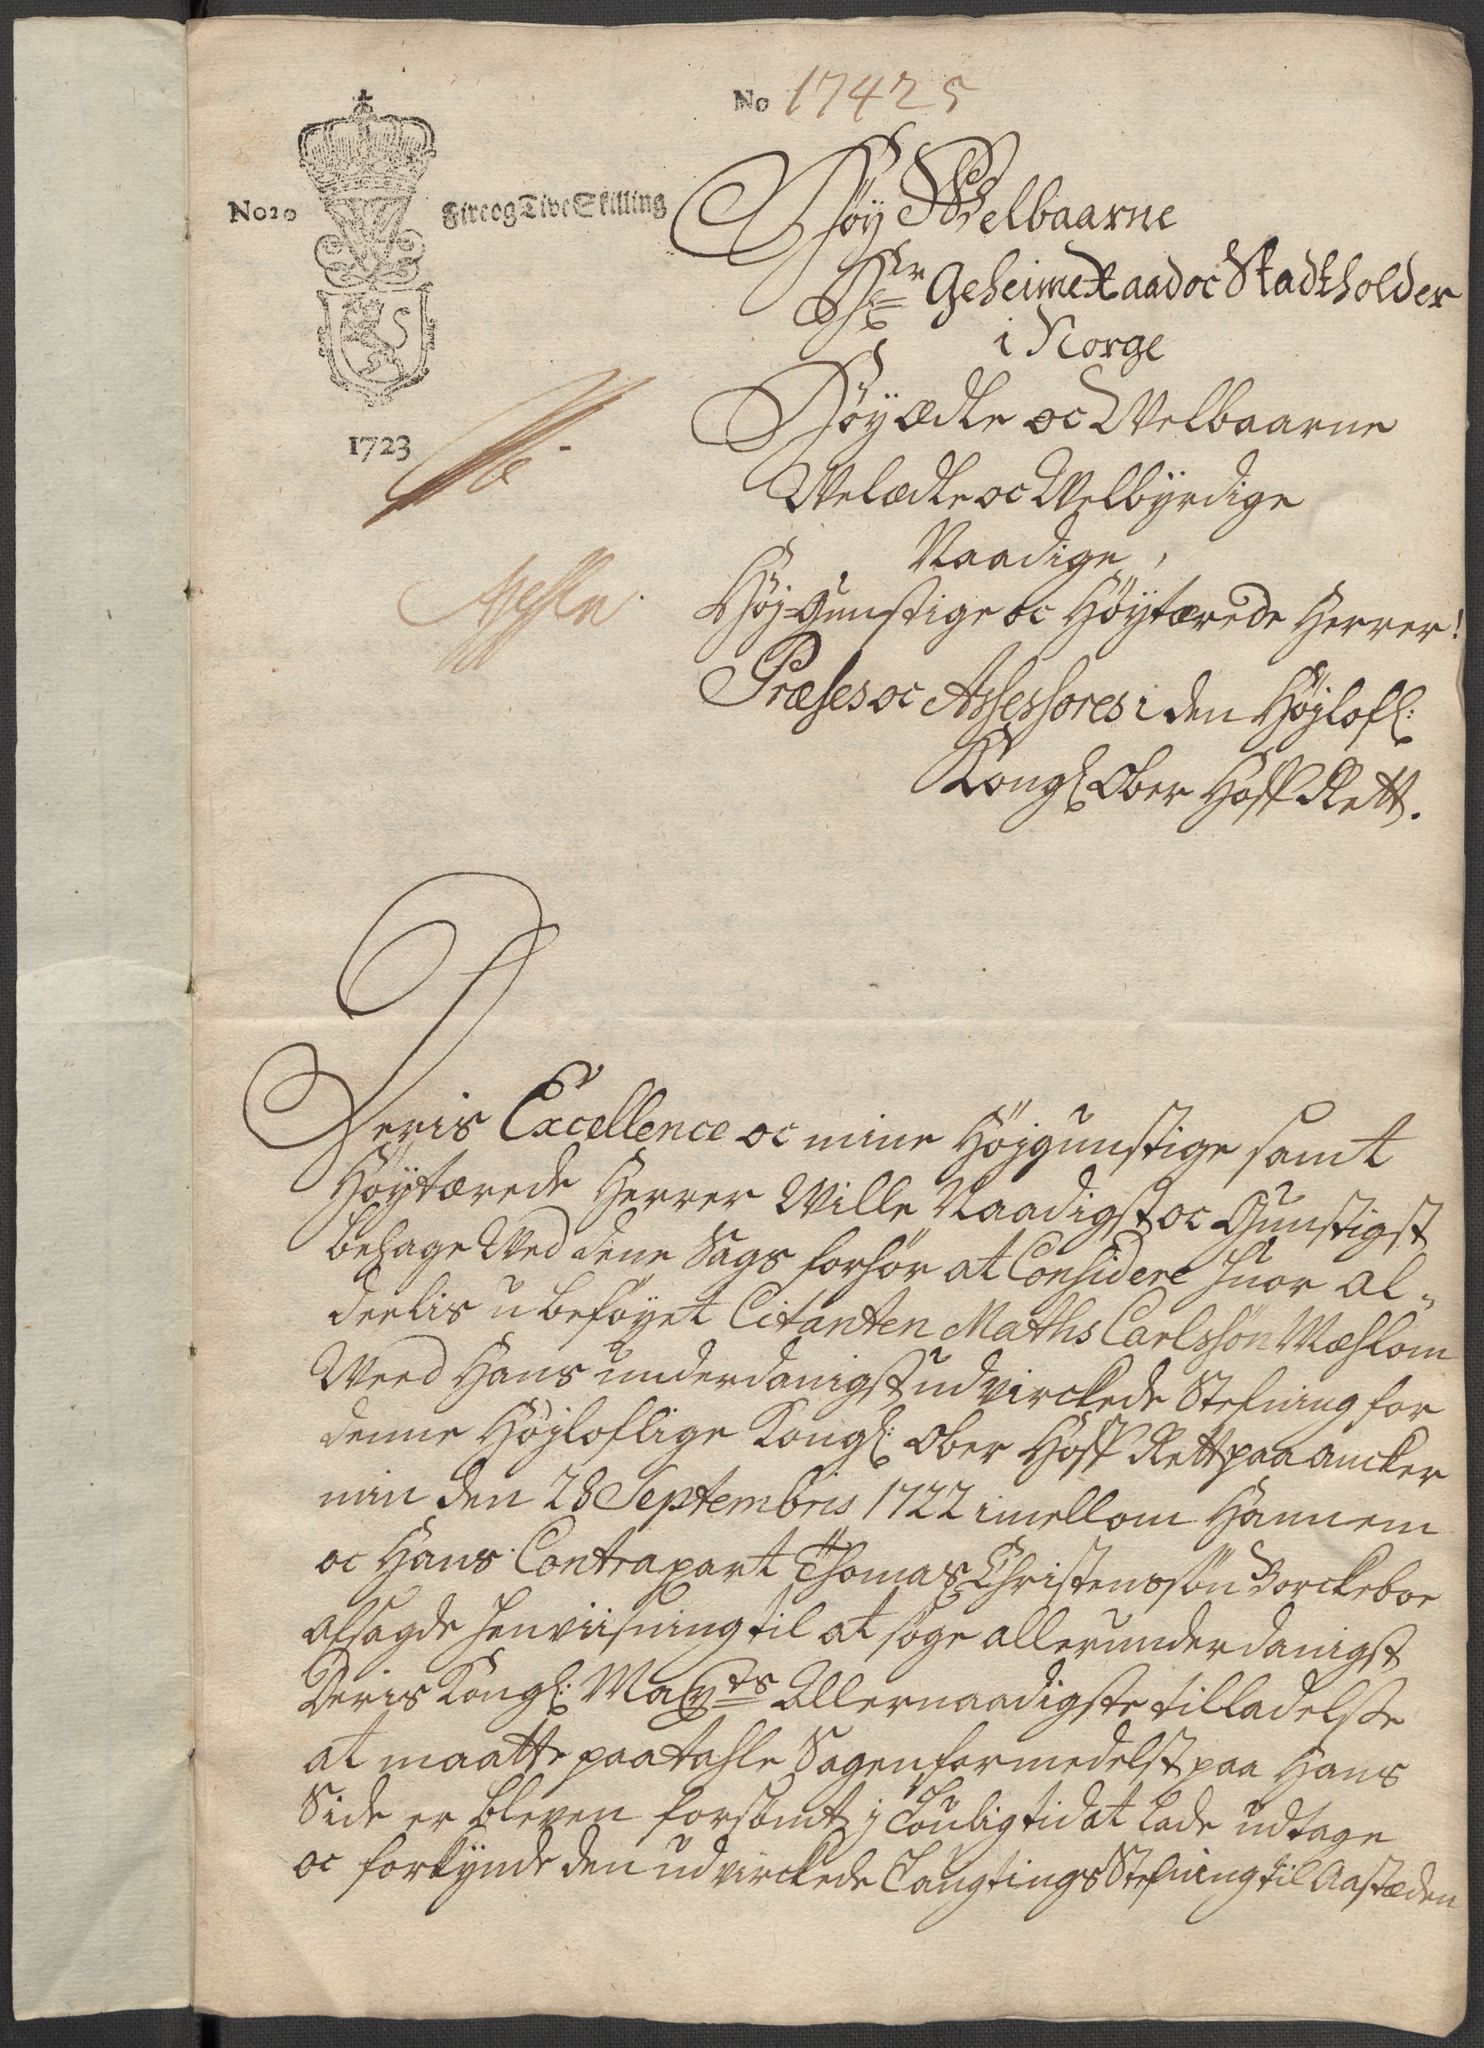 No 17425
No 20 Fire og Tive Skilling
1723
Høy Welbaarne
Hr Geheime Raad oc Stadtholder
i Norge
Høyædle oc Welbaarne
Welædle oc Welbÿrdige
Naadige,
Høj-gunstige oc Høÿtærede Herrer!
Præses oc Assessores i den Højlofl:
Kongl Ober Hoff Rett.
Deris Excellence oc mine Højgunstige samt
Høÿtærede Herrer Wille Naadigst oc Gunstigst
behage Wed dene Sags forhør at Considere huor al-
deelis ubeføyet Citanten Maths Carlssøn Mæhlom
Weed Hans underdanigst udvirckede Stefning for
denne Højloflige Kongl: Ober Hoff Rett paaancker
min den 28 Septembris 1722 imellom Hannem
oc Hans Contrapart Thomas Christenssøn Borckeboe
afsagde henviisning til at søge allerunderdanigst
Deris Kongl: Mayts Allernaadigste tilladelsse
at maatte paatahle Sagen formedelst paa Hans
Side er bleven forsømt j Louligtid at lade udtage
oc forkÿnde den udvirckede Laugtings Stefning til Aastæden